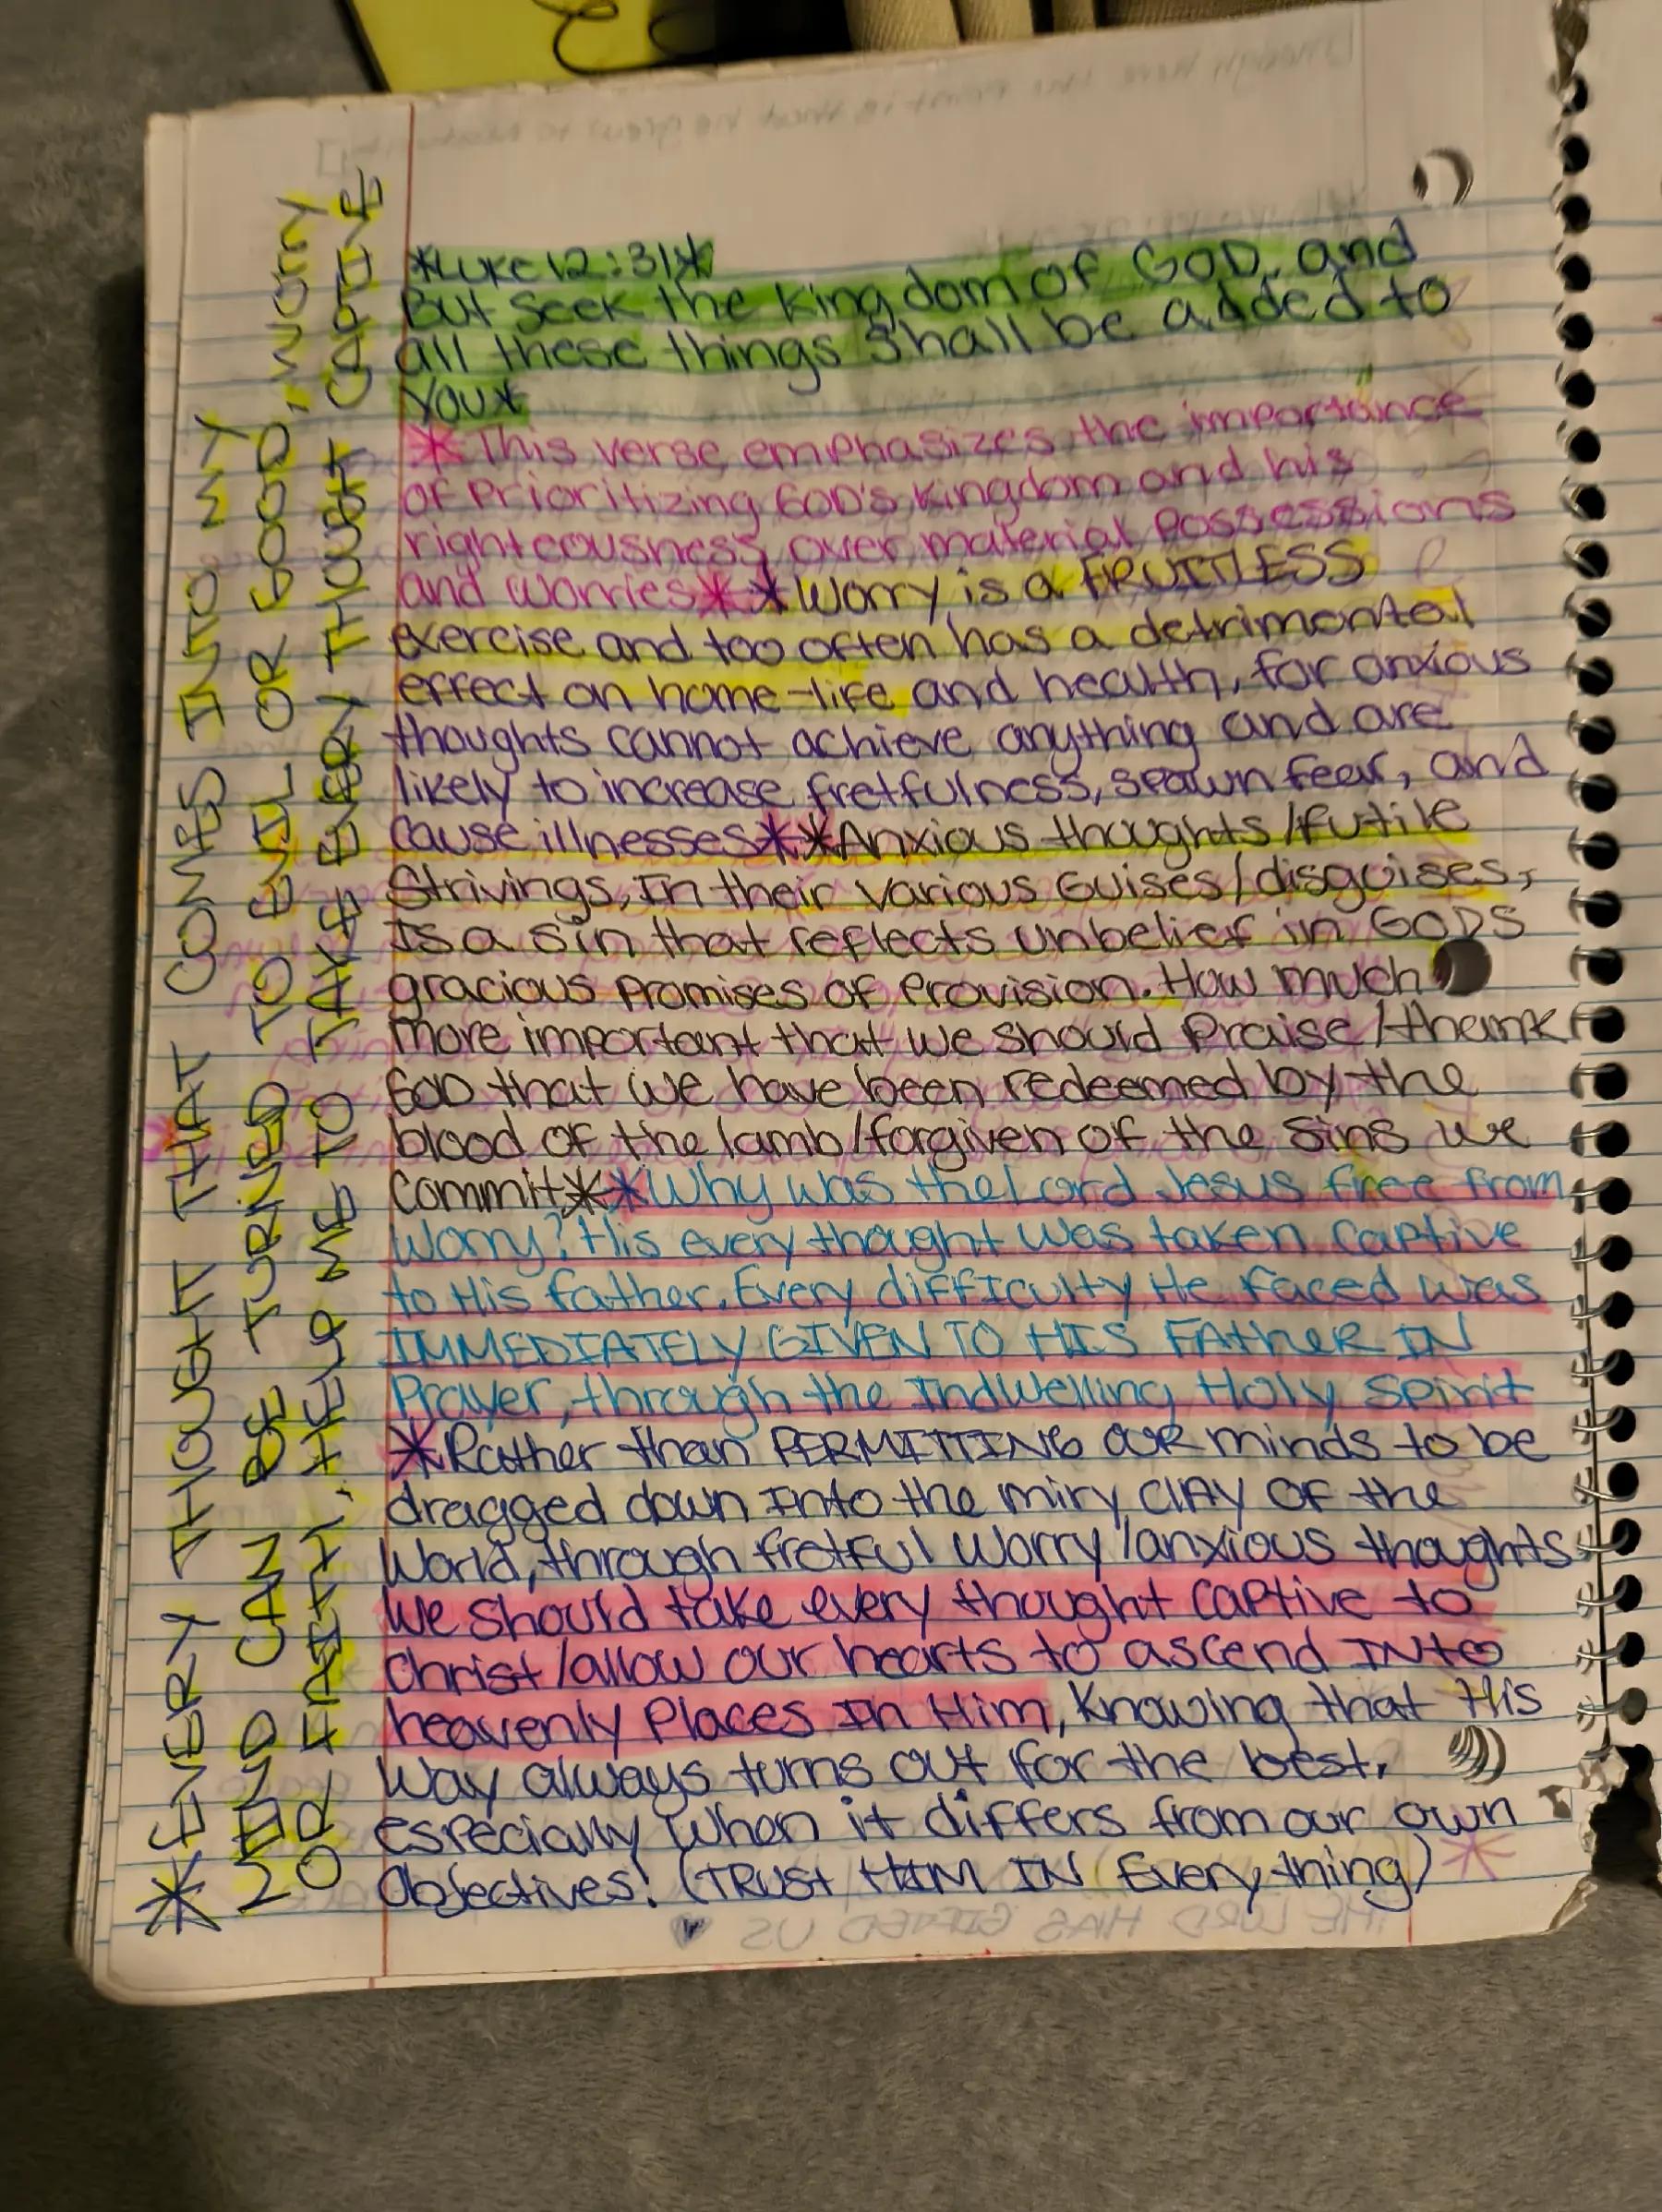 *Luke 12:31*
But seek the kingdom of GOD, and
all these things shall be added to
you*
*This verse emphasizes the importance
of Prioritizing GOD's kingdom and his
righteousness over material Possessions
and worries* *Worry is a FRUITLESS
exercise and too often has a detrimental
effect on home-life and health, for anxious
thoughts cannot achieve anything and are
likely to increase fretfulness, spawn fear, and
cause illnesses* *Anxious thoughts/futile
Strivings, In their various Guises/disguises,
Is a sin that reflects unbelief in GODS
gracious promises of Provision. How much
more important that we should Praise/thank
GOD that we have been redeemed by the
blood of the lamb/forgiven of the sins we
commit* *Why was the Lord Jesus free from
worry? His every thought was taken captive
to His father. Every difficulty He faced was
IMMEDIATELY GIVEN TO HIS FATHER IN
Prayer, through the Indwelling Holy Spirit
*Rather than PERMITTING OUR minds to be
dragged down Into the miry CLAY OF the
World, through fretful worry/anxious thoughts
We should take every thought captive to
Christ/allow our hearts to ascend INto
heavenly Places In Him, Knowing that His
Way always turns out for the best,
especially when it differs from our own
Objectives! (TRUST HIM IN Everything)*
*EVERY THOUGHT THAT COMES INTO MY
MIND CAN BE TURNED TO EVIL OR GOOD, WORRY
OR FAITH. HELP ME TO TAKE EVERY THOUGHT CAPTIVE
THE LORD HAS GIFTED US